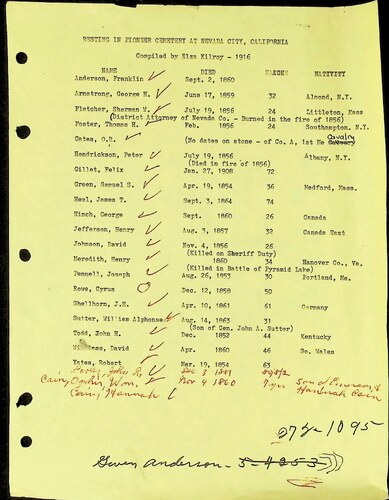 RESTING IN PIONEER CEMETERY AT NEVADA CITY, CALIFORNIA
Compiled by Elza Kilroy - 1916
NAME DIED NATIVITY
Anderson, Franklin Sept. 2, 1860
Armstrong, George H. June 17, 1859 32 Almond, N.Y.
Fletcher, Sherman W. July 19, 1856 24 Littleton, Mass
(District Attorney of Nevada Co. - Burned in the fire of 1856)
Foster, Thomas H. Feb. 1856 24 Southampton, N.Y.
Cavalry
Gates, O.R. (No dates on stone - of Co. A, 1st Me
Hendrickson, Peter July 19, 1856 Albany, N.Y.
(Died in fire of 1856)
Gillet, Felix Jan. 27, 1908 72
Green, Samuel S. Apr. 19, 1854 36 Medford, Mass.
Heel, James T. Sept. 3, 1864 74
Hinch, George Sept. 1860 26 Canada
Jefferson, Henry Aug. 3, 1857 32 Canada East
Johnson, David Nov. 4, 1856 26
(Killed on Sheriff Duty)
Meredith, Henry 1860 34 Hanover Co., Va.
(Killed in Battle of Pyramid Lake)
Pennell, Joseph Aug. 26, 1853 30 Portland, Me.
Rowe, Cyrus Dec. 12, 1858 50
Shellhorn, J.H. Apr. 10, 1861 61 Germany
Sutter, William Alphonse Aug. 14, 1863 31
(Son of Gen. John A. Sutter)
Todd, John H. Dec. 1852 44 Kentucky
Williams, David Apr. 1860 46 So. Wales
Yates, Robert Mar. 19, 1854 63
John Dec 3
Cain, Wm. Nov 4 1860 7 yrs son of &
Cain, Hannah Hannah Cain
1095
Gwen Anderson - 5-4253